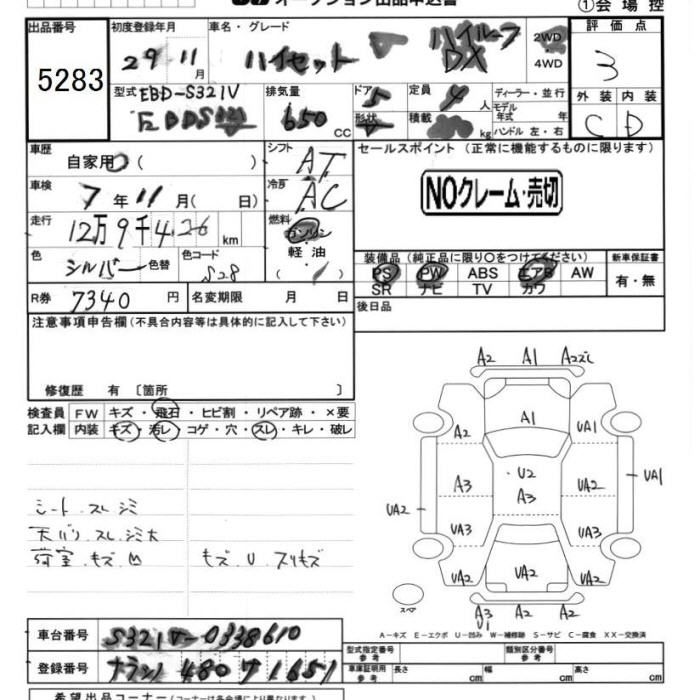 オークション出品申込書
①会場控
出品番号
5283
初度登録年月
29年11月
車名・グレード
ハイゼット
ハイルーフ
DX
2WD
4WD
評価点
3
型式
EBD-S321V
排気量
650 cc
ドア
5
形状
定員
4人
積載
kg
ディーラー・並行
モデル年式 年式
ハンドル 左・右
外装
内装
C
D
車歴
自家用 ( )
シフト
AT
セールスポイント (正常に機能するものに限ります)
車検
7年11月( 日)
冷房
AC
NOクレーム・売切
走行
12万9千426 km
燃料
ガソリン
軽油
( )
色
シルバー
色替
色コード
S28
装備品 (純正品に限り○をつけてください)
新車保証書
PS PW ABS エアB AW
有・無
SR ナビ TV カワ
R券
7340円
名変期限 月 日
後日品
注意事項申告欄 (不具合内容等は具体的に記入して下さい)
修復歴 有 〔箇所 〕
検査員
記入欄
FW キズ・飛石・ヒビ割・リペア跡・×要
内装 キズ・汚レ・コゲ・穴・スレ・キレ・破レ
シート.スレ.シミ
天バリ.スレ.シミ大
荷室.キズ.凹
キズ.U.スリキズ
A2 A1 A2ズレ
A1
A2
UA1
A3
U2
A3
UA2
UA1
UA2
UA3
UA3
UA2
UA2
UA2
スペア
A3 A2 A2
U1
A-キズ E-エクボ U-凹み W-補修跡 S-サビ C-腐食 XX-交換済
車台番号
S321V-0338610
登録番号
480 71651
型式指定番号
参考
類別区分番号
参考
車庫証明用
参考
長さ cm
幅 cm
高さ cm
希望出品コーナー (コーナーは各会場により異なります)